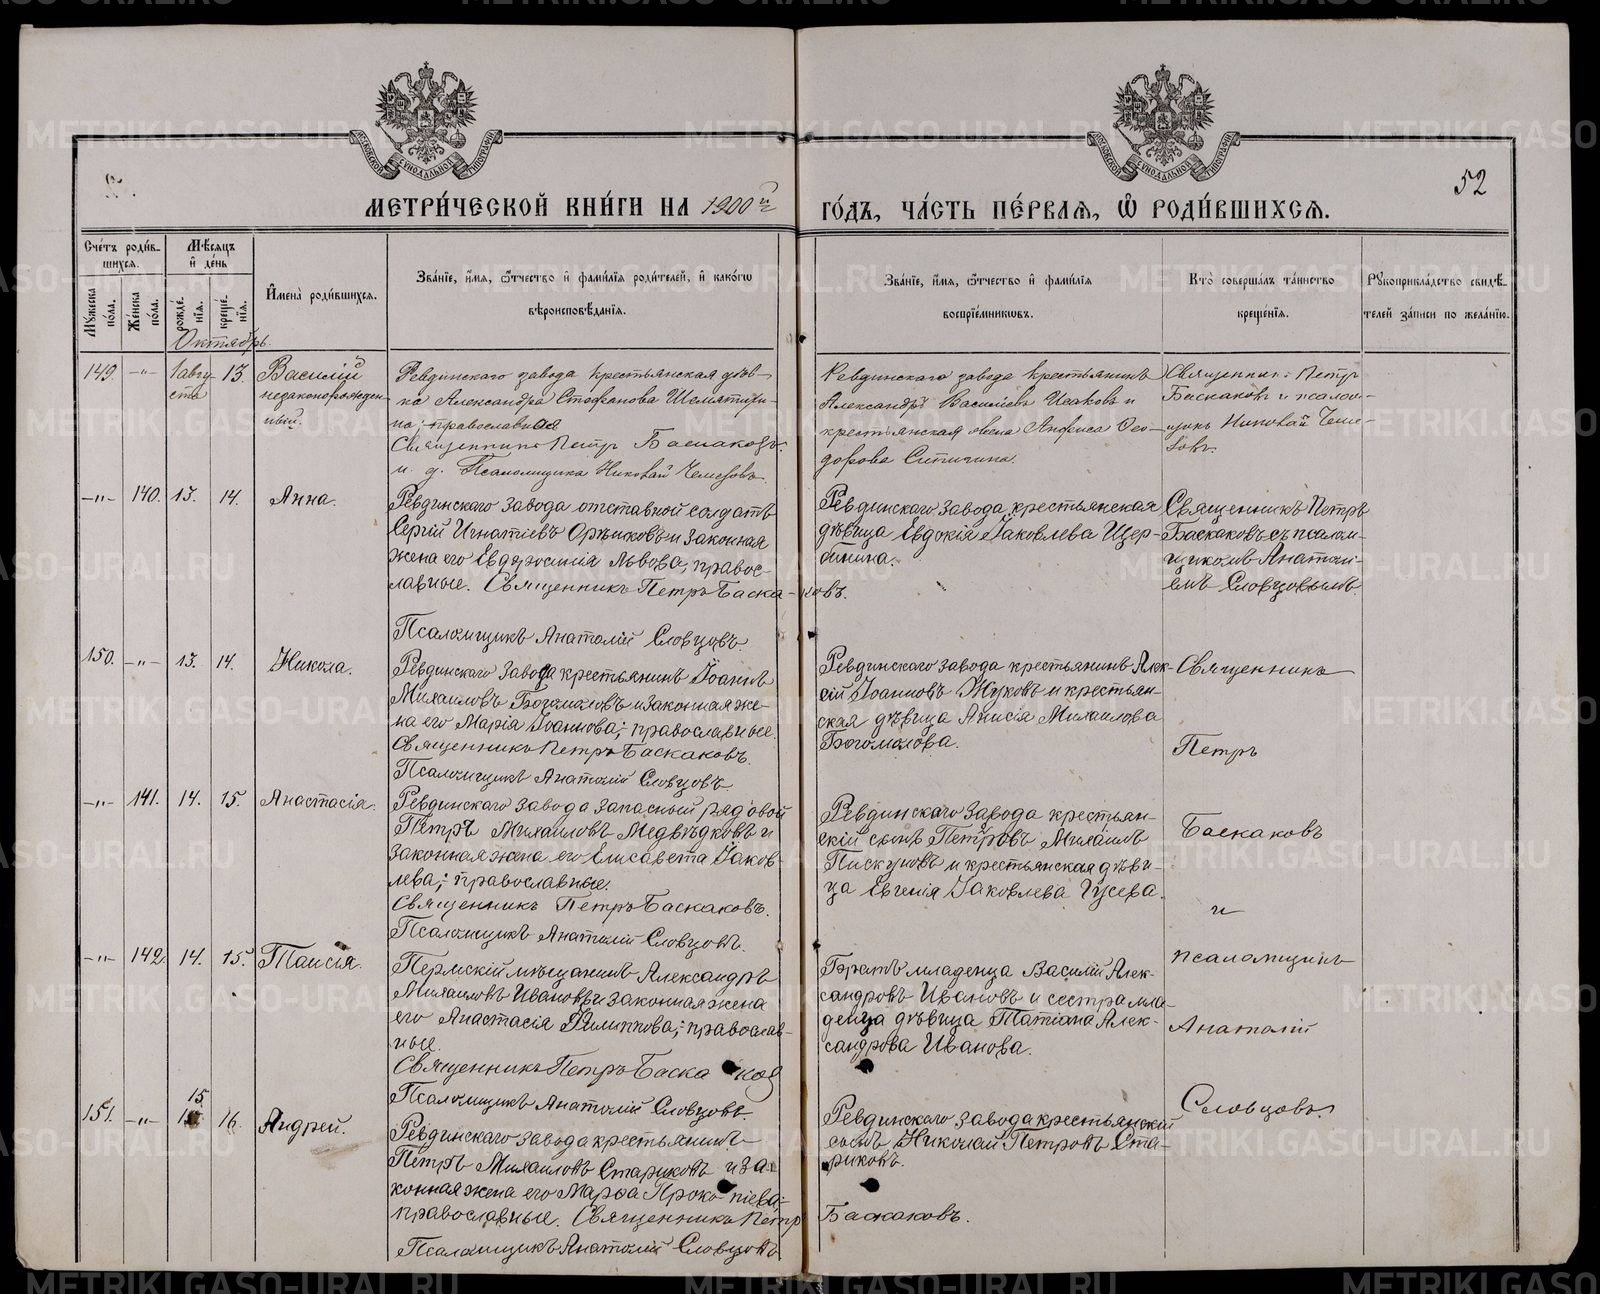 52
МЕТРИ́ЧЕСКОЙ КНИ́ГИ НА 1900й
ГО́ДЪ, ЧА́СТЬ ПЕ́РВАЯ, Ѽ РОДИ́ВШИХСЯ.
Сче́тъ роди́в-
шихся.
Мꙋ́жеска
по́ла.
Же́нска
по́ла.
Мѣ́сяцъ
и҆ де́нь
рожде́-
нїя.
креще́-
нїя.
И҆мена̀ роди́вшихся.
Зва́нїе, и҆́мя, ѻ҆́тчество и҆ фами́лїя роди́телей, и҆ како́гѡ
вѣроисповѣ́данїя.
Зва́нїе, и҆́мя, ѻ҆́тчество и҆ фами́лїя
воспрїе́мникѡвъ.
Кто̀ соверша́лъ та́инство
креще́нїя.
Рꙋкоприкла́дство свидѣ́-
телей за́писи по жела́нїю.
Октябрь.
149. —"— 1 авгу-
ста 13. Василій
незаконорожден-
ный.
Ревдинскаго завода крестьянская дѣв-
ка Александра Стефанова
на; православная
Священникъ Петръ Баскаковъ.
и. д. Псаломщика Николай
Ревдинскаго завода крестьянинъ
Александръ Василіевъ Исаковъ и
крестьянская Анфиса Ѳео-
дорова
Священник: Петръ
Баскаковъ и псалом-
щикъ Николай
—"— 140. 13. 14. Анна.
Ревдинскаго завода отставной солдатъ
Сергій Игнатіевъ Орѣшковъ и законная
жена его Евфросинія Львова; правос-
лавные. Священникъ Петръ Баска-ковъ.
Псаломщикъ Анатолій Словцовъ
Ревдинскаго завода крестьянская
дѣвица Евдокія Іаковлева Щер-
бинина.
Священникъ Петръ
Баскаковъ съ псалом-
щикомъ Анатолі-
емъ Словцовымъ
150. —"— 13. 14. Никола.
Ревдинскаго завода крестьянинъ Іоаннъ
Михаиловъ Богомоловъ и законная же-
на его Марія Іоаннова; православные.
Священникъ Петръ Баскаковъ.
Псаломщикъ Анатолій Словцовъ
Ревдинскаго завода крестьянинъ Алек-
сій Іоанновъ Жуковъ и крестьян-
ская дѣвица Анисія Михаилова
Богомолова.
Священникъ
Петръ
—"— 141. 14. 15. Анастасія.
Ревдинскаго завода запасный рядовой
Петръ Михаиловъ Медвѣдковъ и
законная жена его Елисавета Іаков-
лева; православные.
Священникъ Петръ Баскаковъ.
Псаломщикъ Анатолій Словцовъ.
Ревдинскаго завода крестьян-
скій сынъ Петровъ Михаилъ
Пискуновъ и крестьянская дѣви-
ца Евгенія Іаковлева Гусева.
Баскаковъ
и
—"— 142. 14. 15. Таисія.
Пермскій мѣщанинъ Александръ
Михаиловъ Ивановъ и законная жена
его Анастасія Филиппова; православ-
ные.
Священникъ Петръ Баскаков
Псаломщикъ Анатолій Словцовъ.
Братъ младенца Василій Алек-
сандровъ Ивановъ и сестра мла-
денца дѣвица Татіана Алек-
сандрова Иванова.
псаломщикъ
Анатолій
Словцовъ.
151. —"— 15 16. Андрей.
Ревдинскаго завода крестьянинъ
Петръ Михаиловъ Стариковъ и за-
конная жена его Марѳа Прокопіева;
православные. Священникъ Петр Баскаковъ.
Псаломщикъ Анатолій Словцовъ
Ревдинскаго завода крестьянскій
сынъ Николай Петровъ Ста-
риковъ.